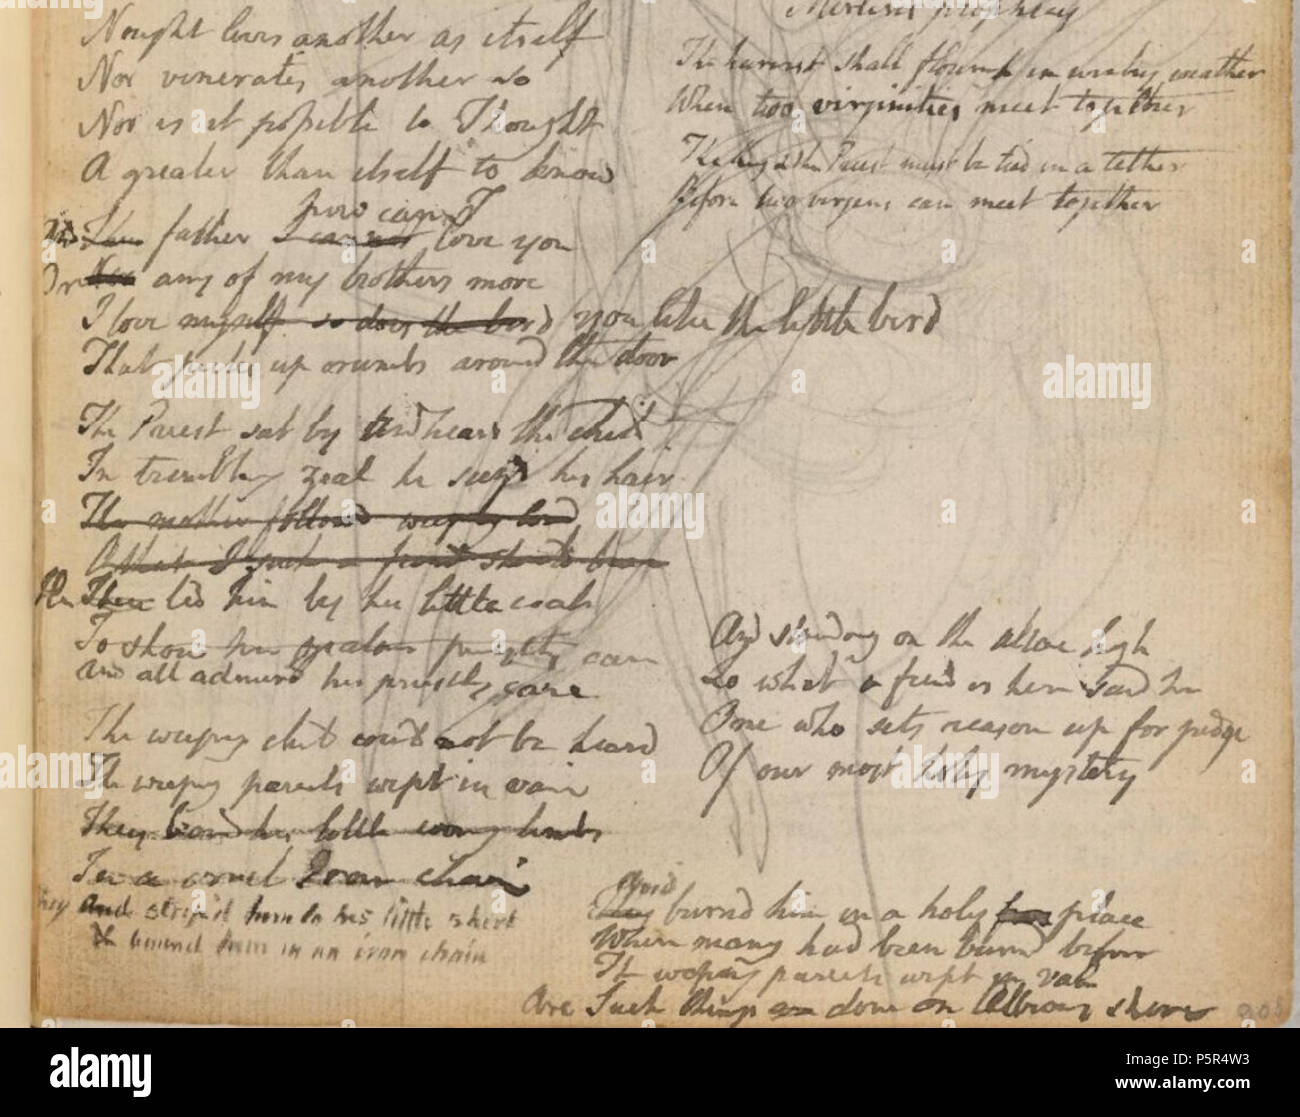 Nought loves another as itself
Nor venerates another so
Nor is it possible to Thought
A greater than itself to know
how can I
And Then father I cannot love you
Or Nor any of my brothers more
I love myself so does the bird you like the little bird
That picks up crumbs around the door
The Priest sat by and heard the child
In trembling zeal he siezd his hair
The mother followd weeping loud
O that I such a fiend should bear
He Then led him by his little coat
To show his zealous priestly care
And all admird his priestly care
The weeping child could not be heard
The weeping parents wept in vain
They bound his little ivory limbs
In a cruel Iron chain
They And strip'd him to his little shirt
& bound him in an iron chain
Merlins prophecy
The harvest shall flourish in wintry weather
When two virginities meet together
The King & the Priest must be tied in a tether
Before two virgins can meet together
And standing on the altar high
Lo what a fiend is here said he
One who sets reason up for judge
Of our most holy mystery
And
They burnd him in a holy place
Where many had been burnd before
The weeping parents wept in vain
Are Such things are done on Albions shore
a
alamy
Image ID: P5R4W3
www.alamy.com